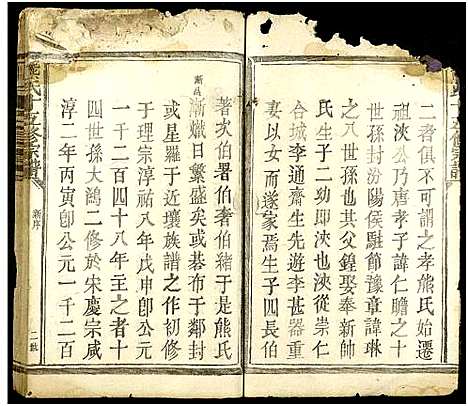 二者俱不可謂之孝熊氏始遷
祖浹公乃唐孝子諱仁贍之十
世孫封汾陽侯駐節豫章諱琳
公其祖也其父鍠娶奉新帥
氏生子二幼即浹也浹從崇仁
合城李通齋生先遊李甚器重
妻以女而遂家焉生子四長伯
著次伯署伯奢伯緒于是熊氏
漸熾日繁盛矣或碁布于鄰封
或星羅于近壤族譜之作初修
于理宗淳祐八年戊申卽公元
一千二百四十八年主之者十
四世孫大鴻二修於宋慶宗咸
淳二年丙寅卽公元一千二百
熊氏十五修宗譜
新序
二